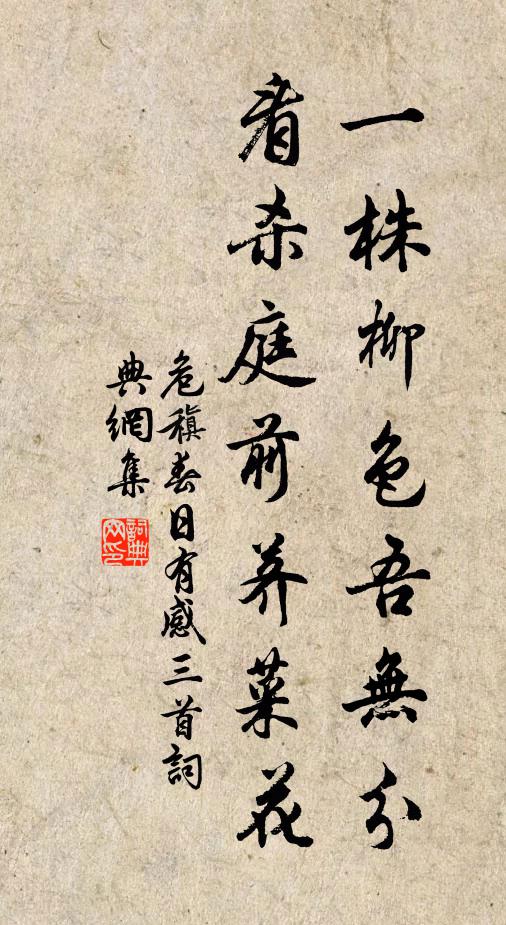 一株柳色吾無分
看杀庭前荠菜花
危稹春日有感三首詞
典網集
詞典网印